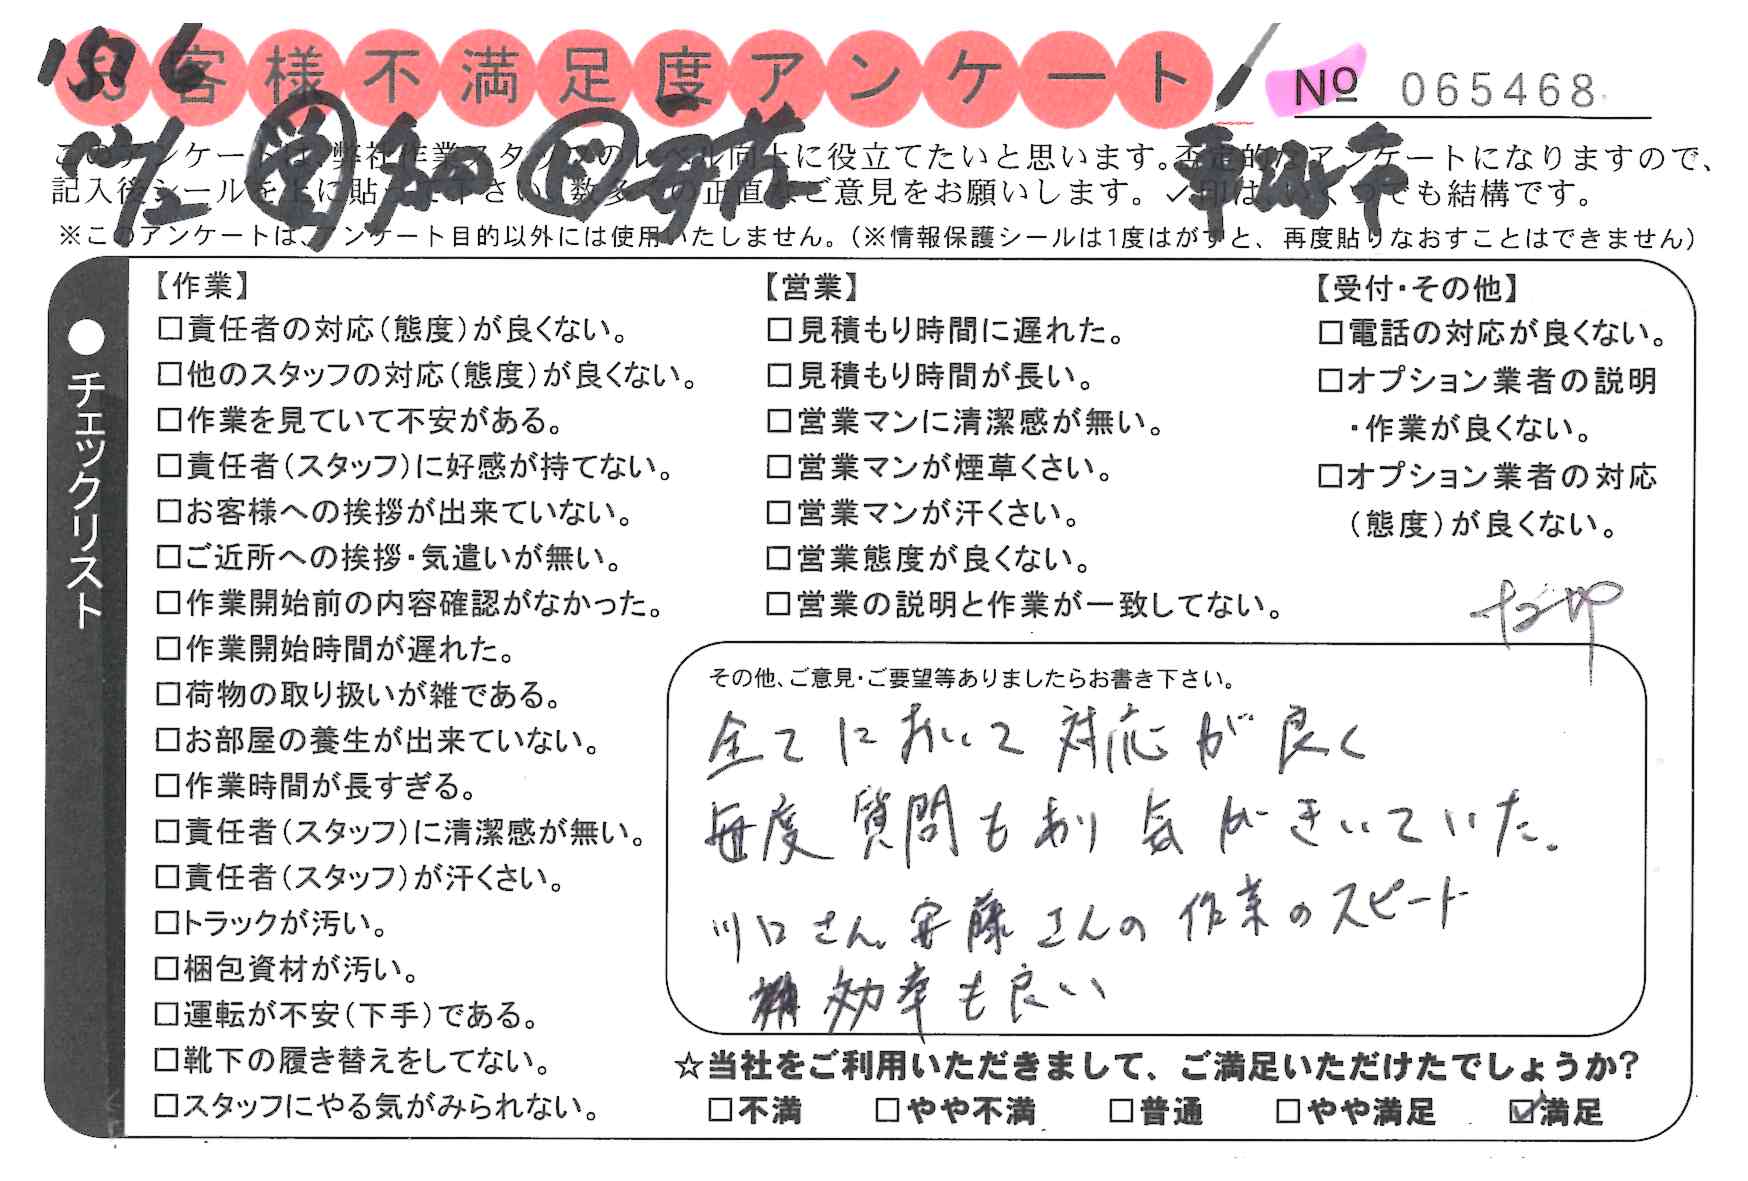 お客様不満足度アンケート
№ 065468
このアンケートは、弊社作業スタッフのレベル向上に役立てたいと思います。否定的なアンケートになりますので、
記入後シールを上に貼って下さい。数多くの正直なご意見をお願いします。✓印は、いくつでも結構です。
※このアンケートは、アンケート目的以外には使用いたしません。(※情報保護シールは1度はがすと、再度貼りなおすことはできません)
●チェックリスト
【作業】
□責任者の対応(態度)が良くない。
□他のスタッフの対応(態度)が良くない。
□作業を見ていて不安がある。
□責任者(スタッフ)に好感が持てない。
□お客様への挨拶が出来ていない。
□ご近所への挨拶・気遣いが無い。
□作業開始前の内容確認がなかった。
□作業開始時間が遅れた。
□荷物の取り扱いが雑である。
□お部屋の養生が出来ていない。
□作業時間が長すぎる。
□責任者(スタッフ)に清潔感が無い。
□責任者(スタッフ)が汗くさい。
□トラックが汚い。
□梱包資材が汚い。
□運転が不安(下手)である。
□靴下の履き替えをしてない。
□スタッフにやる気がみられない。
【営業】
□見積もり時間に遅れた。
□見積もり時間が長い。
□営業マンに清潔感が無い。
□営業マンが煙草くさい。
□営業マンが汗くさい。
□営業態度が良くない。
□営業の説明と作業が一致してない。
【受付・その他】
□電話の対応が良くない。
□オプション業者の説明
・作業が良くない。
□オプション業者の対応
(態度)が良くない。
その他、ご意見・ご要望等ありましたらお書き下さい。
全てにおいて対応が良く
毎度質問もあり気がきいていた。
川口さん安藤さんの作業のスピード
効率も良い
☆当社をご利用いただきまして、ご満足いただけたでしょうか?
□不満 □やや不満 □普通 □やや満足 ☑満足